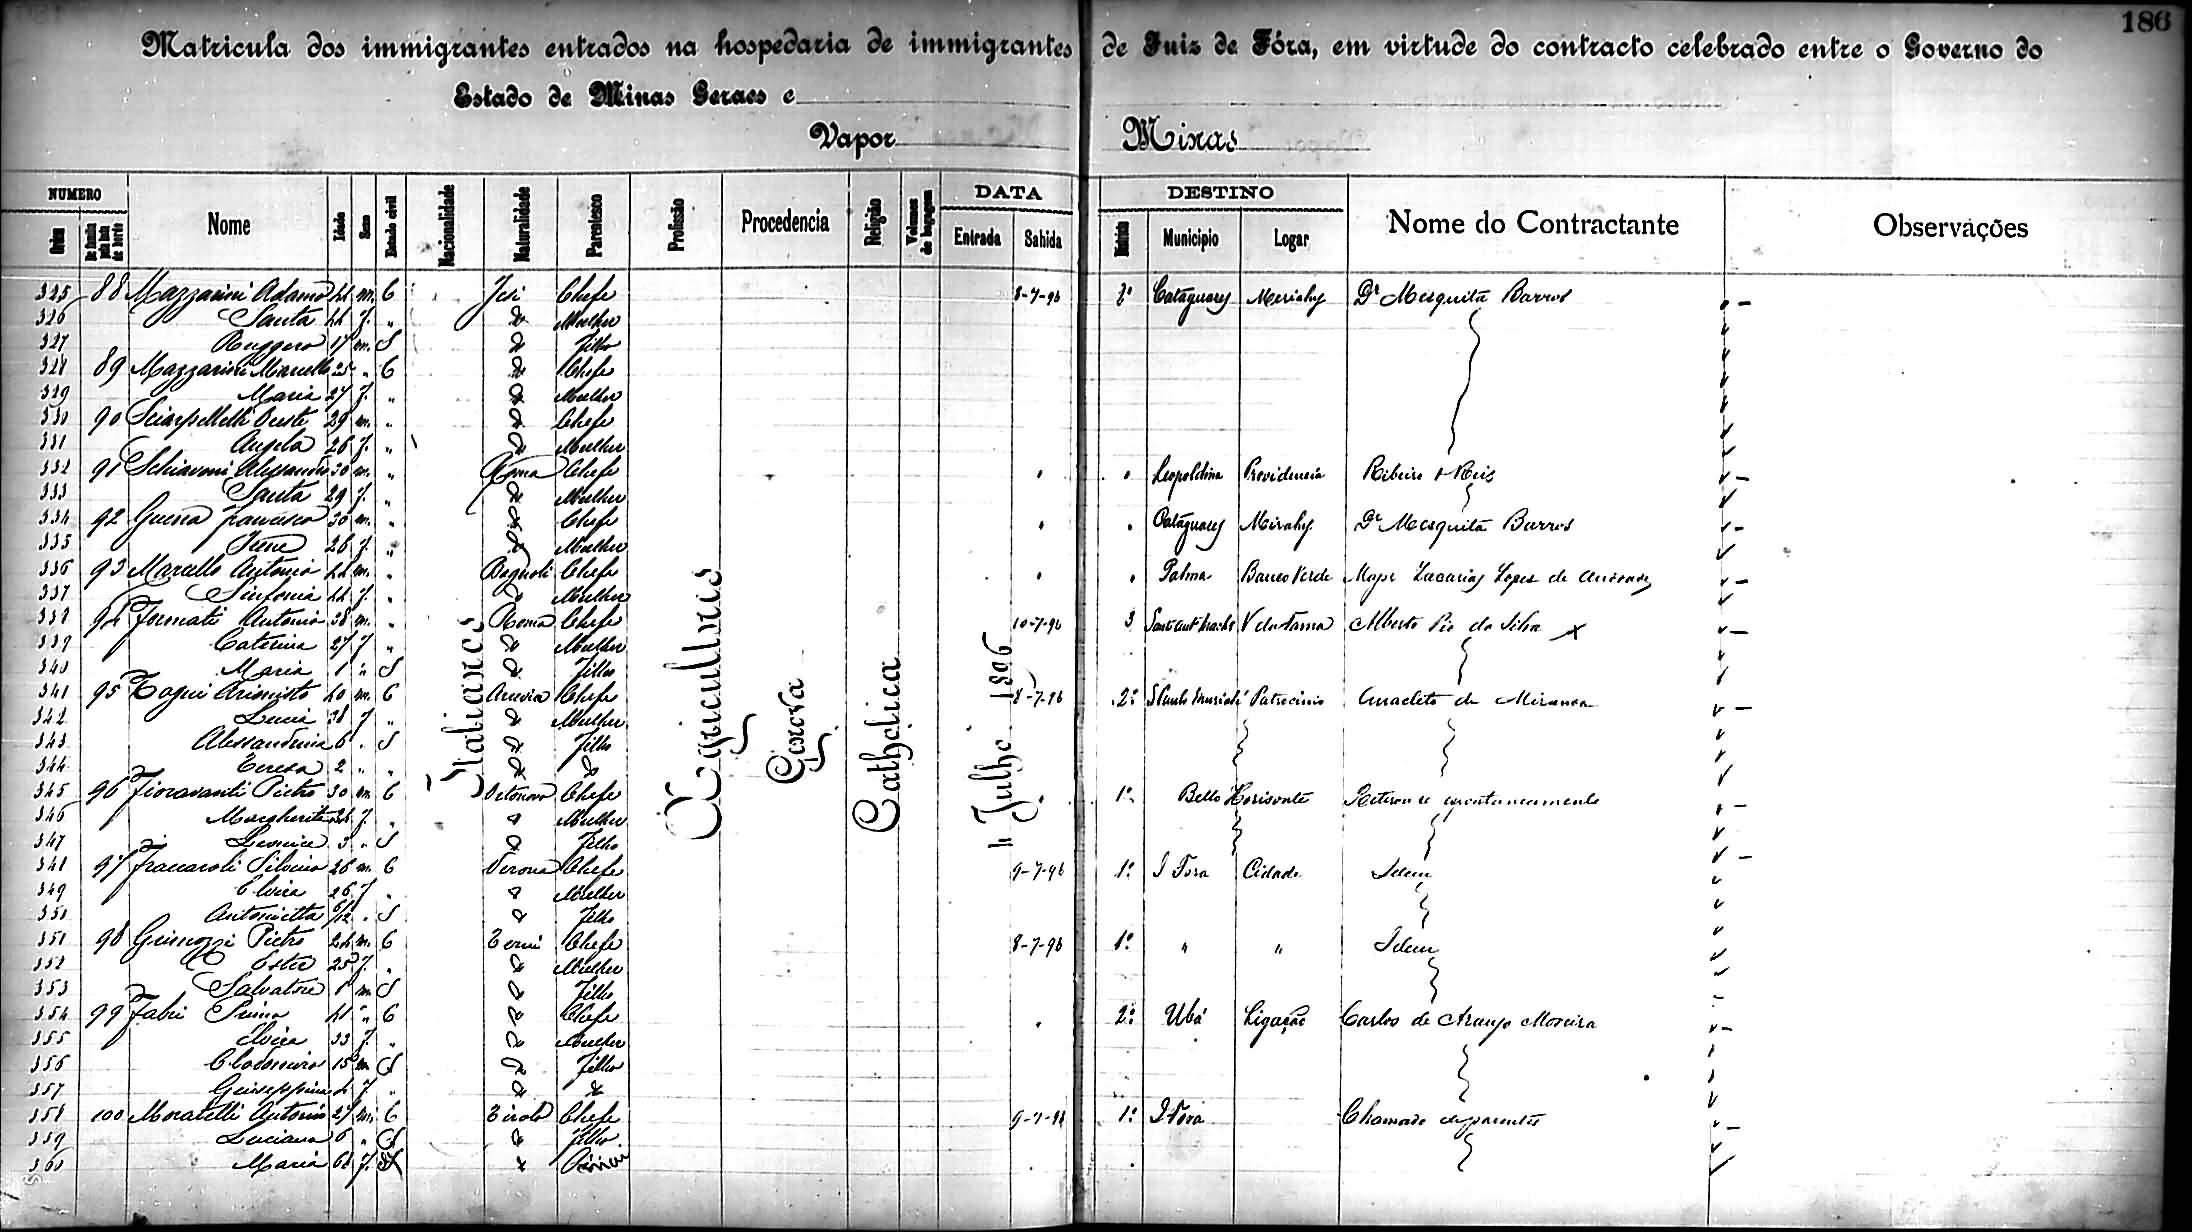 186
Matricula dos immigrantes entrados na hospedaria de immigrantes de Juiz de Fóra, em virtude do contracto celebrado entre o Governo do
Estado de Minas Geraes e
Vapor Minas
NUMERO DATA DESTINO
Ordem Nome Idade Sexo Estado civil Nacionalidade Naturalidade Parentesco Profissão Procedencia Religião Volumes de bagagem Entrada Sahida Municipio Logar Nome do Contractante Observações
Italianos Agricultores Genova Catholica 4 Julho 1896
325 88 Mazzarini Adamo 44 m. C Jesi Chefe 8-7-96 2º Cataguazes Mirahy Dr Mesquita Barros
326 Santa 44 f. " Mulher
327 Ruggero 17 m. S Filho
328 89 Mazzarini 25 " C Chefe
329 Maria 27 f. " Mulher
330 90 29 m. " Chefe
331 Angela 26 f. " Mulher
332 91 Schiavoni Alessandro 30 m. " Roma Chefe " " Leopoldina Providencia Ribeiro & Reis
333 Santa 29 f. " Mulher
334 92 Guerra Francesco 30 m. " Chefe " " Cataguazes Mirahy Dr Mesquita Barros
335 Irene 26 f. " Mulher
336 93 Marcello Antonio 44 m. " Bagnoli Chefe " " Palma Banco Verde Major Zacarias Lopes de Andrade
337 Sinfonia 44 f. " Mulher
338 94 Fornati Antonio 38 m. " Roma Chefe 10-7-96 3 V da Fama Alberto Pio da Silva X
339 Caterina 27 f " Mulher
340 Maria 1 " S Filho
341 95 40 m. C Chefe 8-7-96 2º S Paulo Muriahé Patrocinio Anacleto de Miranda
342 Lucia 38 f " Mulher
343 Alessandrina 6 " S Filho
344 Teresa 2 " "
345 96 Fioravanti Pietro 30 m C Chefe " 1º Bello Horisonte Retirou-se espontaneamente
346 Margherita 24 f. " Mulher
347 3 " S Filho
348 97 Fraccaroli Silvino 26 m. C Verona Chefe 9-7-96 1º J Fora Cidade Idem
349 Elvira 26 f " Mulher
350 Antonietta 6/12 " S Filho
351 98 Pietro 24 m. C Terni Chefe 8-7-96 1º " " Idem
352 Ester 25 f. " Mulher
353 Salvatore 1 m. S Filho
354 99 Fabri Primo 41 " C Chefe " 2º Ubá Ligação Carlos de Araujo Moreira
355 Elvira 33 f. " Mulher
356 Clodomiro 15 m S Filho
357 Giuseppina 4 f "
358 100 Moratelli Antonio 27 m. C Tirolo Chefe 9-7-96 1º J Fora Chamado de parentes
359 Luciano 6 " S Filho
360 Maria 61 f.